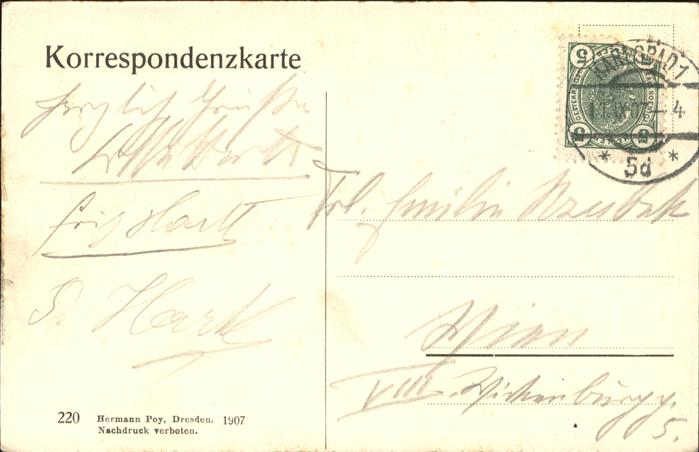 Korrespondenzkarte
Herzliche Grüße
Fritz Hartl
S. Hark
220 Hermann Poy, Dresden. 1907
Nachdruck verboten.
5 5
5 5
KARLSBAD 1
11.IX.07 - 4
* 5d *
Frl. Emilie
Wien
VIII. Wickenburgg.
5.